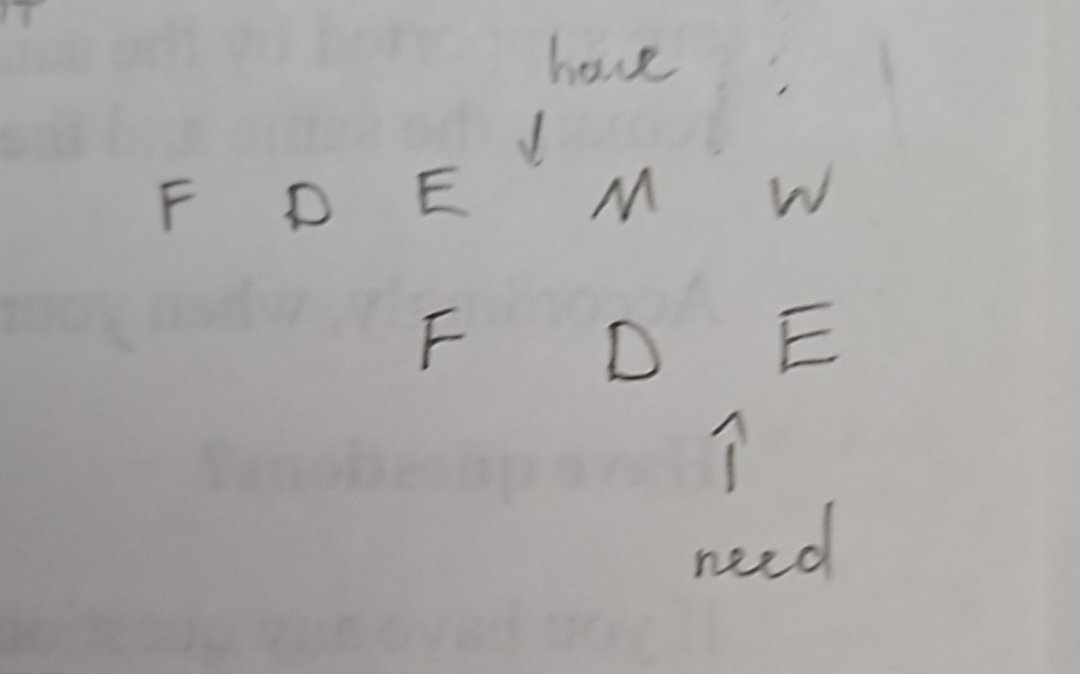 have
F D E M W
F D E
need